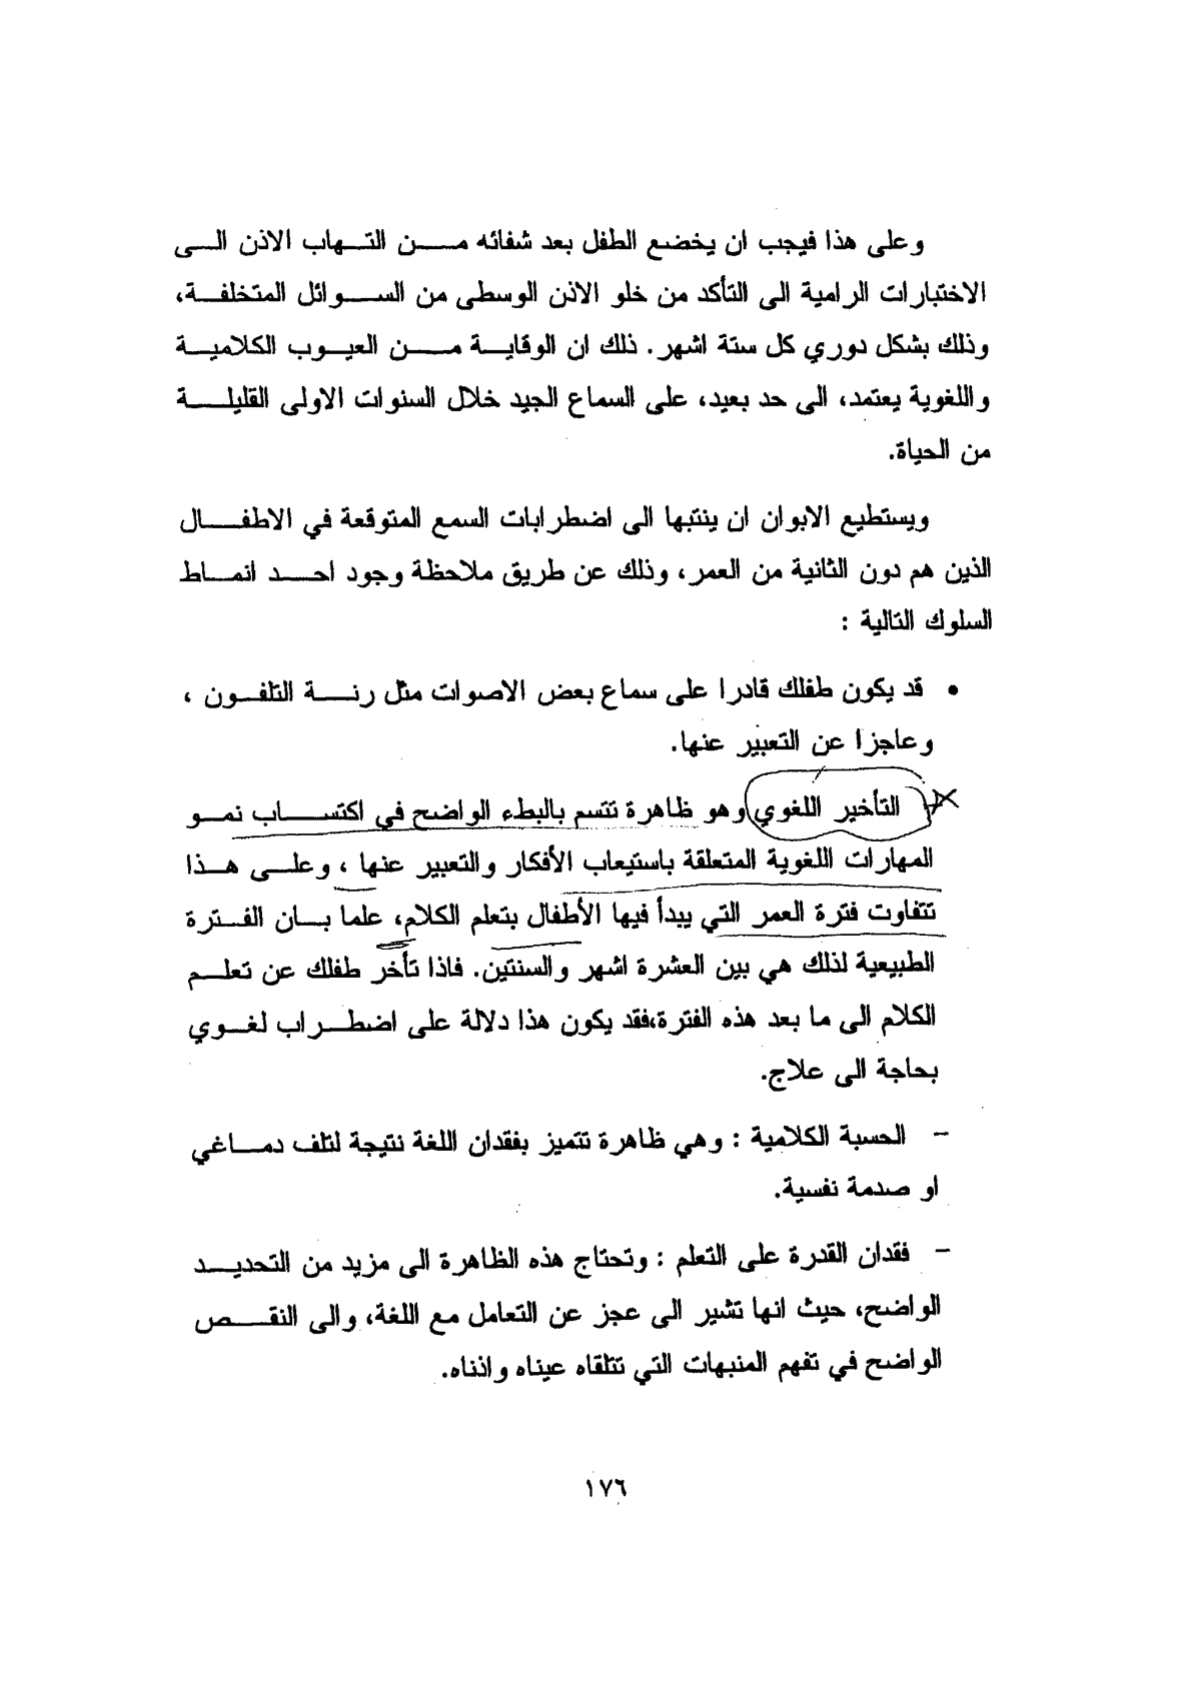 وعلى هذا فيجب ان يخضع الطفل بعد شفائه من التهاب الاذن الى
الاختبارات الرامية الى التأكد من خلو الاذن الوسطى من السوائل المتخلفة،
وذلك بشكل دوري كل ستة اشهر. ذلك ان الوقاية من العيوب الكلامية
واللغوية يعتمد، الى حد بعيد، على السماع الجيد خلال السنوات الاولى القليلة
من الحياة.
ويستطيع الابوان ان ينتبها الى اضطرابات السمع المتوقعة في الاطفال
الذين هم دون الثانية من العمر، وذلك عن طريق ملاحظة وجود احد انماط
السلوك التالية :
• قد يكون طفلك قادرا على سماع بعض الاصوات مثل رنة التلفون ،
وعاجزا عن التعبير عنها.
التأخير اللغوي وهو ظاهرة تتسم بالبطء الواضح في اكتساب نمو
المهارات اللغوية المتعلقة باستيعاب الأفكار والتعبير عنها ، وعلى هذا
تتفاوت فترة العمر التي يبدأ فيها الأطفال بتعلم الكلام، علما بان الفترة
الطبيعية لذلك هي بين العشرة اشهر والسنتين. فاذا تأخر طفلك عن تعلم
الكلام الى ما بعد هذه الفترة،فقد يكون هذا دلالة على اضطراب لغوي
بحاجة الى علاج.
- الحسبة الكلامية : وهي ظاهرة تتميز بفقدان اللغة نتيجة لتلف دماغي
او صدمة نفسية.
- فقدان القدرة على التعلم : وتحتاج هذه الظاهرة الى مزيد من التحديد
الواضح، حيث انها تشير الى عجز عن التعامل مع اللغة، والى النقص
الواضح في تفهم المنبهات التي تتلقاه عيناه واذناه.
١٧٦